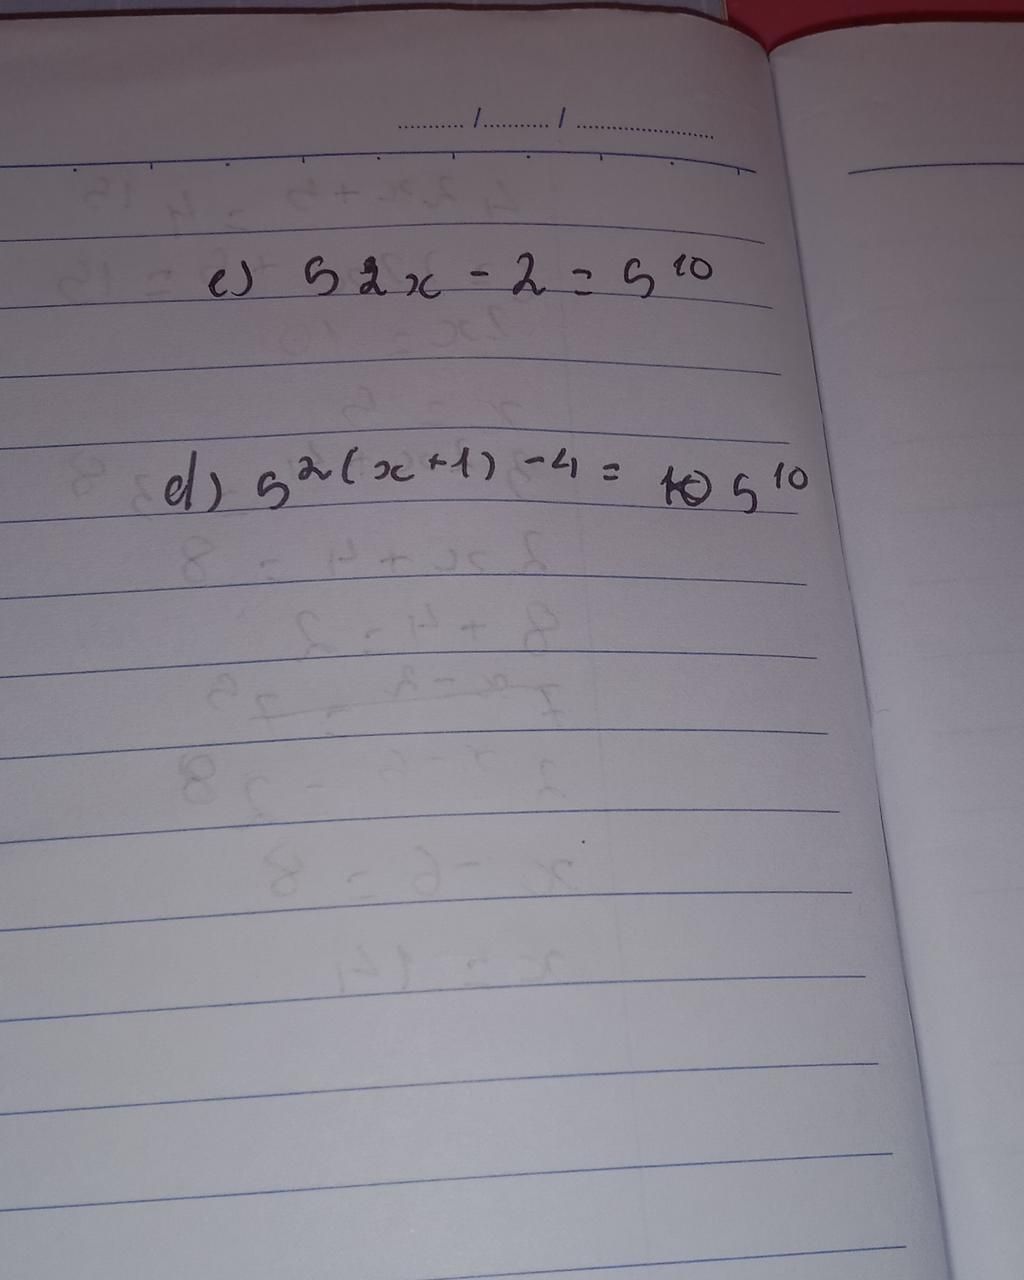 c) 5 2x - 2 = 5^10
d) 5^2(x+1) -4 = 5^10